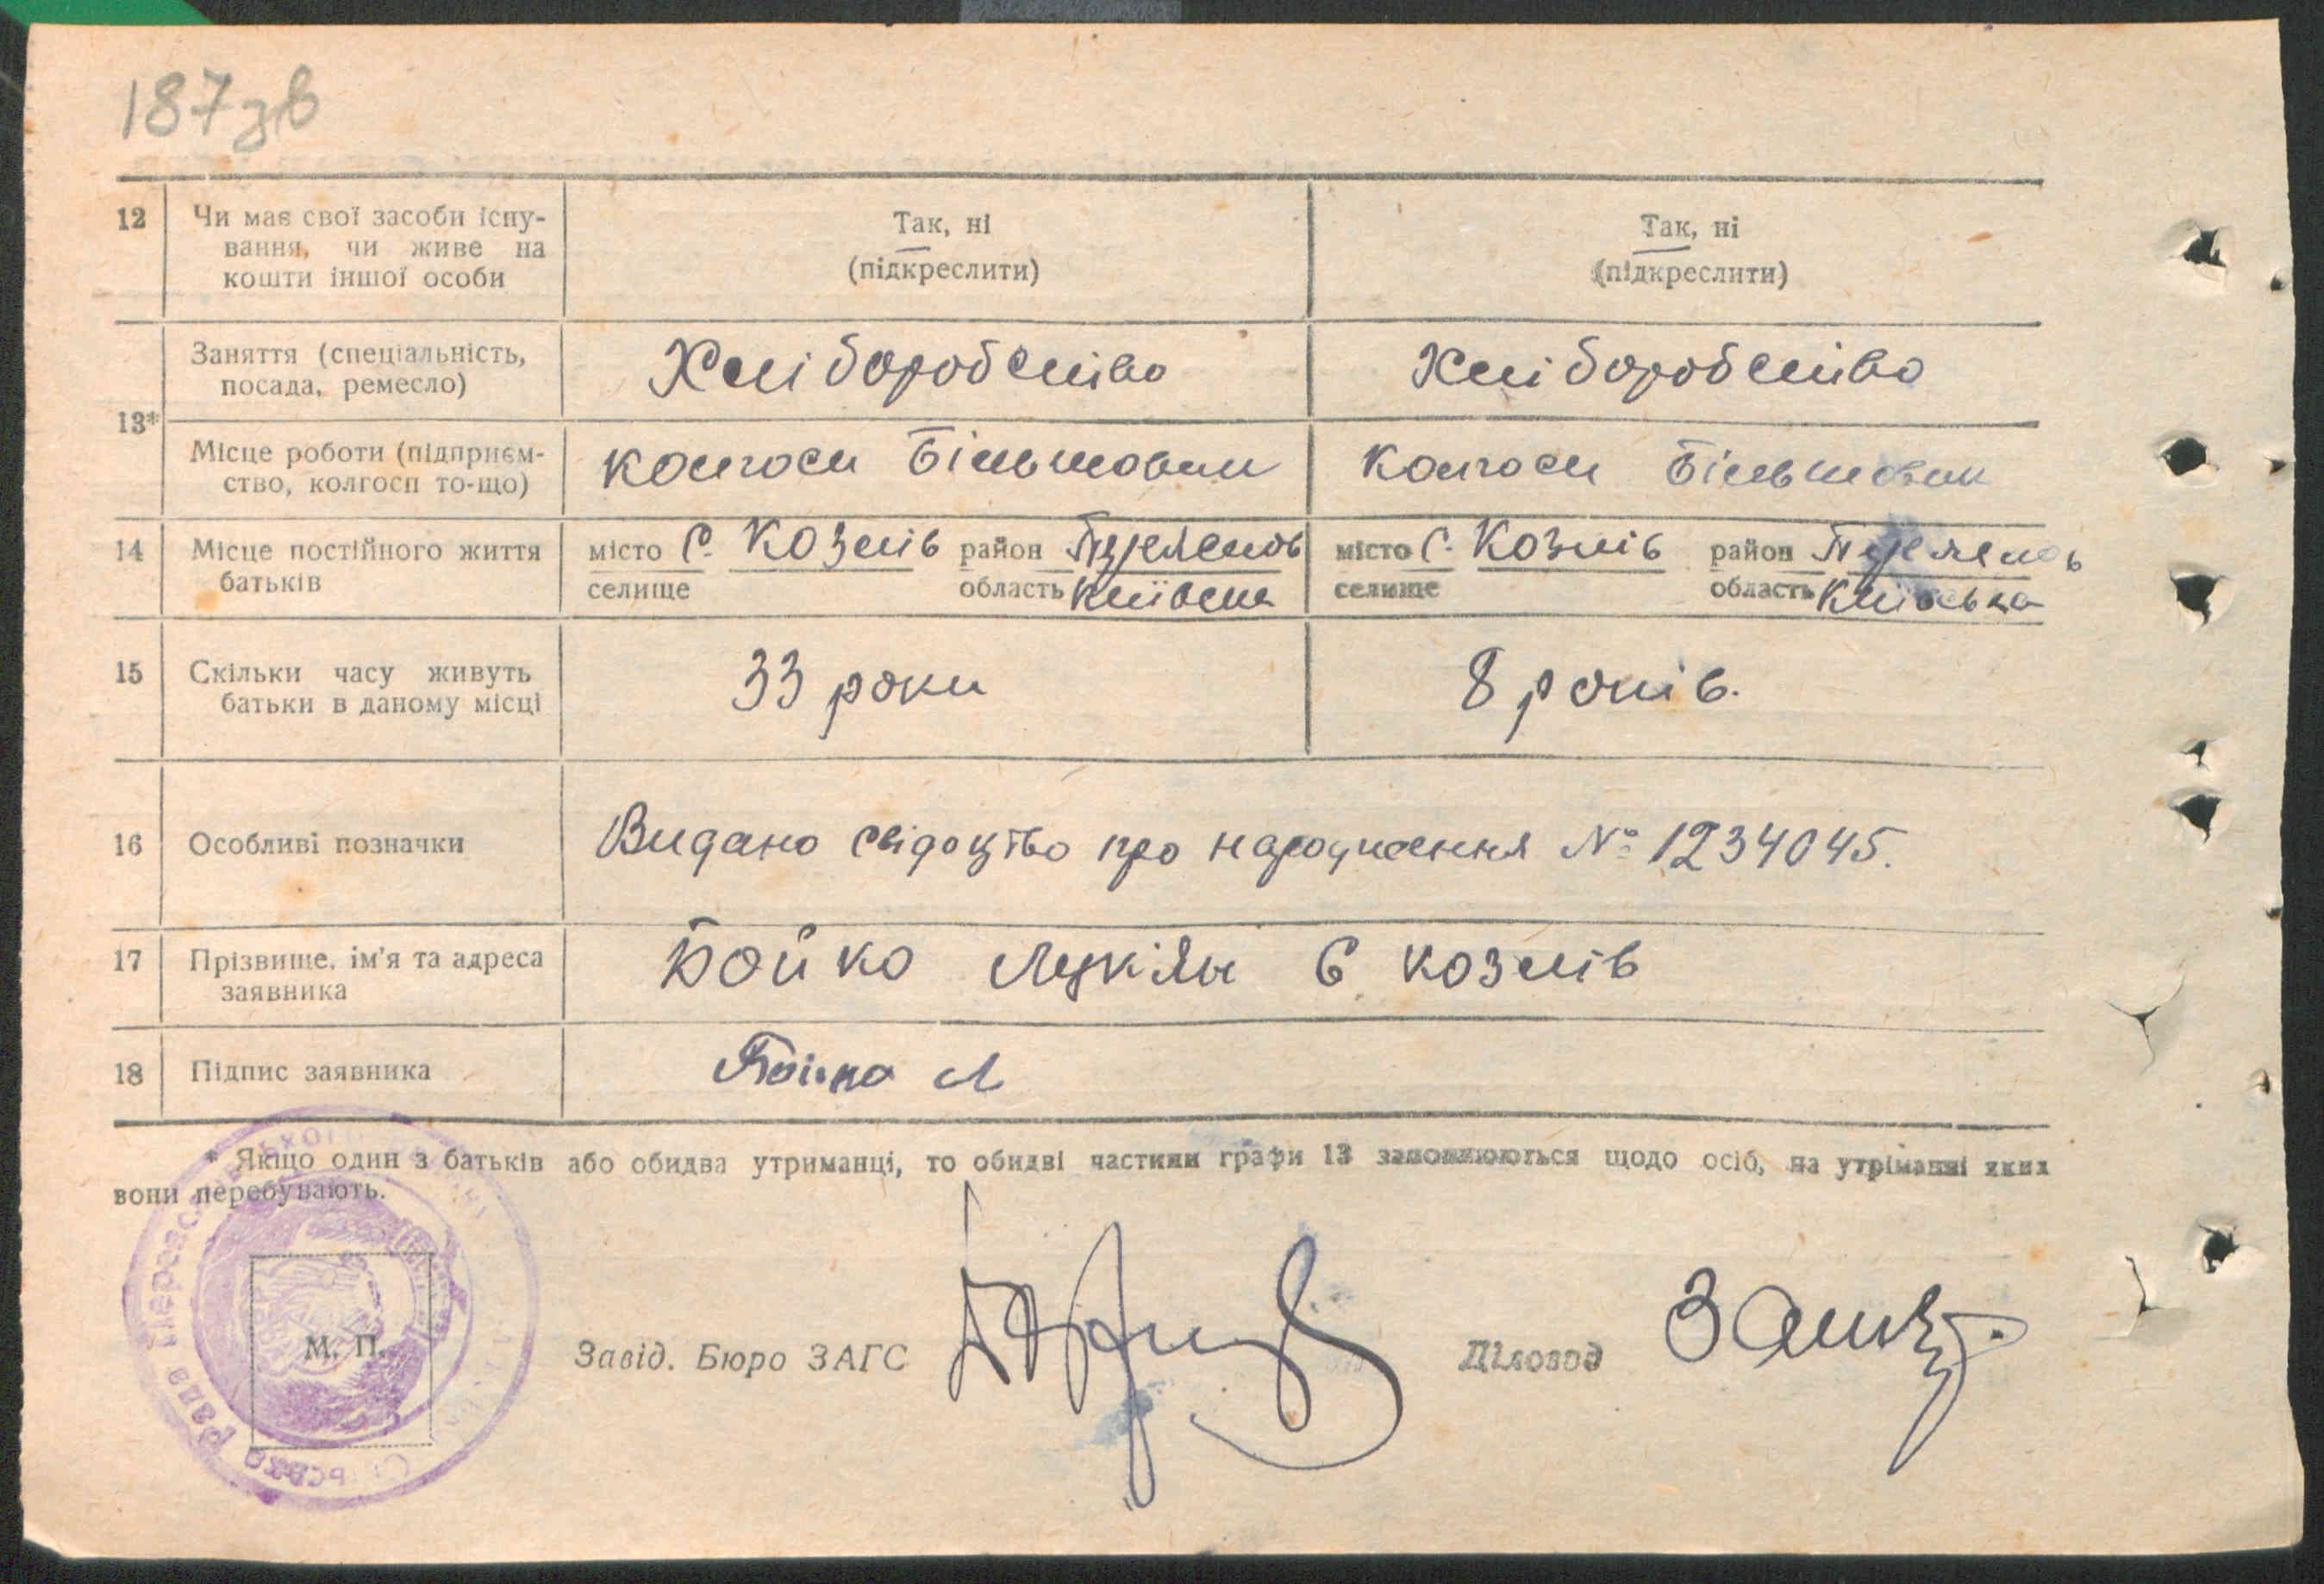 187зв
12 Чи має свої засоби існу- Так, ні Так, ні
вання, чи живе на (підкреслити) (підкреслити)
кошти іншої особи
Заняття (спеціальність, Хліборобство Хліборобство
посада, ремесло)
13*
Місце роботи (підприєм- колгосп Більшовик колгосп Більшовик
ство, колгосп то-що)
14 Місце постійного життя місто С. Козлів район місто С. Козлів район
батьків селище область селище область Київська
15 Скільки часу живуть 33 роки 8 років.
батьки в даному місці
16 Особливі позначки Видано свідоцтво про народження № 1234045.
17 Прізвище, ім'я та адреса Бойко Лукіян С. Козлів
заявника
18 Підпис заявника Бойко Л
* Якщо один з батьків або обидва утриманці, то обидві частини графи 13 заповнюються щодо осіб, на утріманні яких
вони перебувають.
М. П.
Завід. Бюро ЗАГС Діловод
Сільська Рада